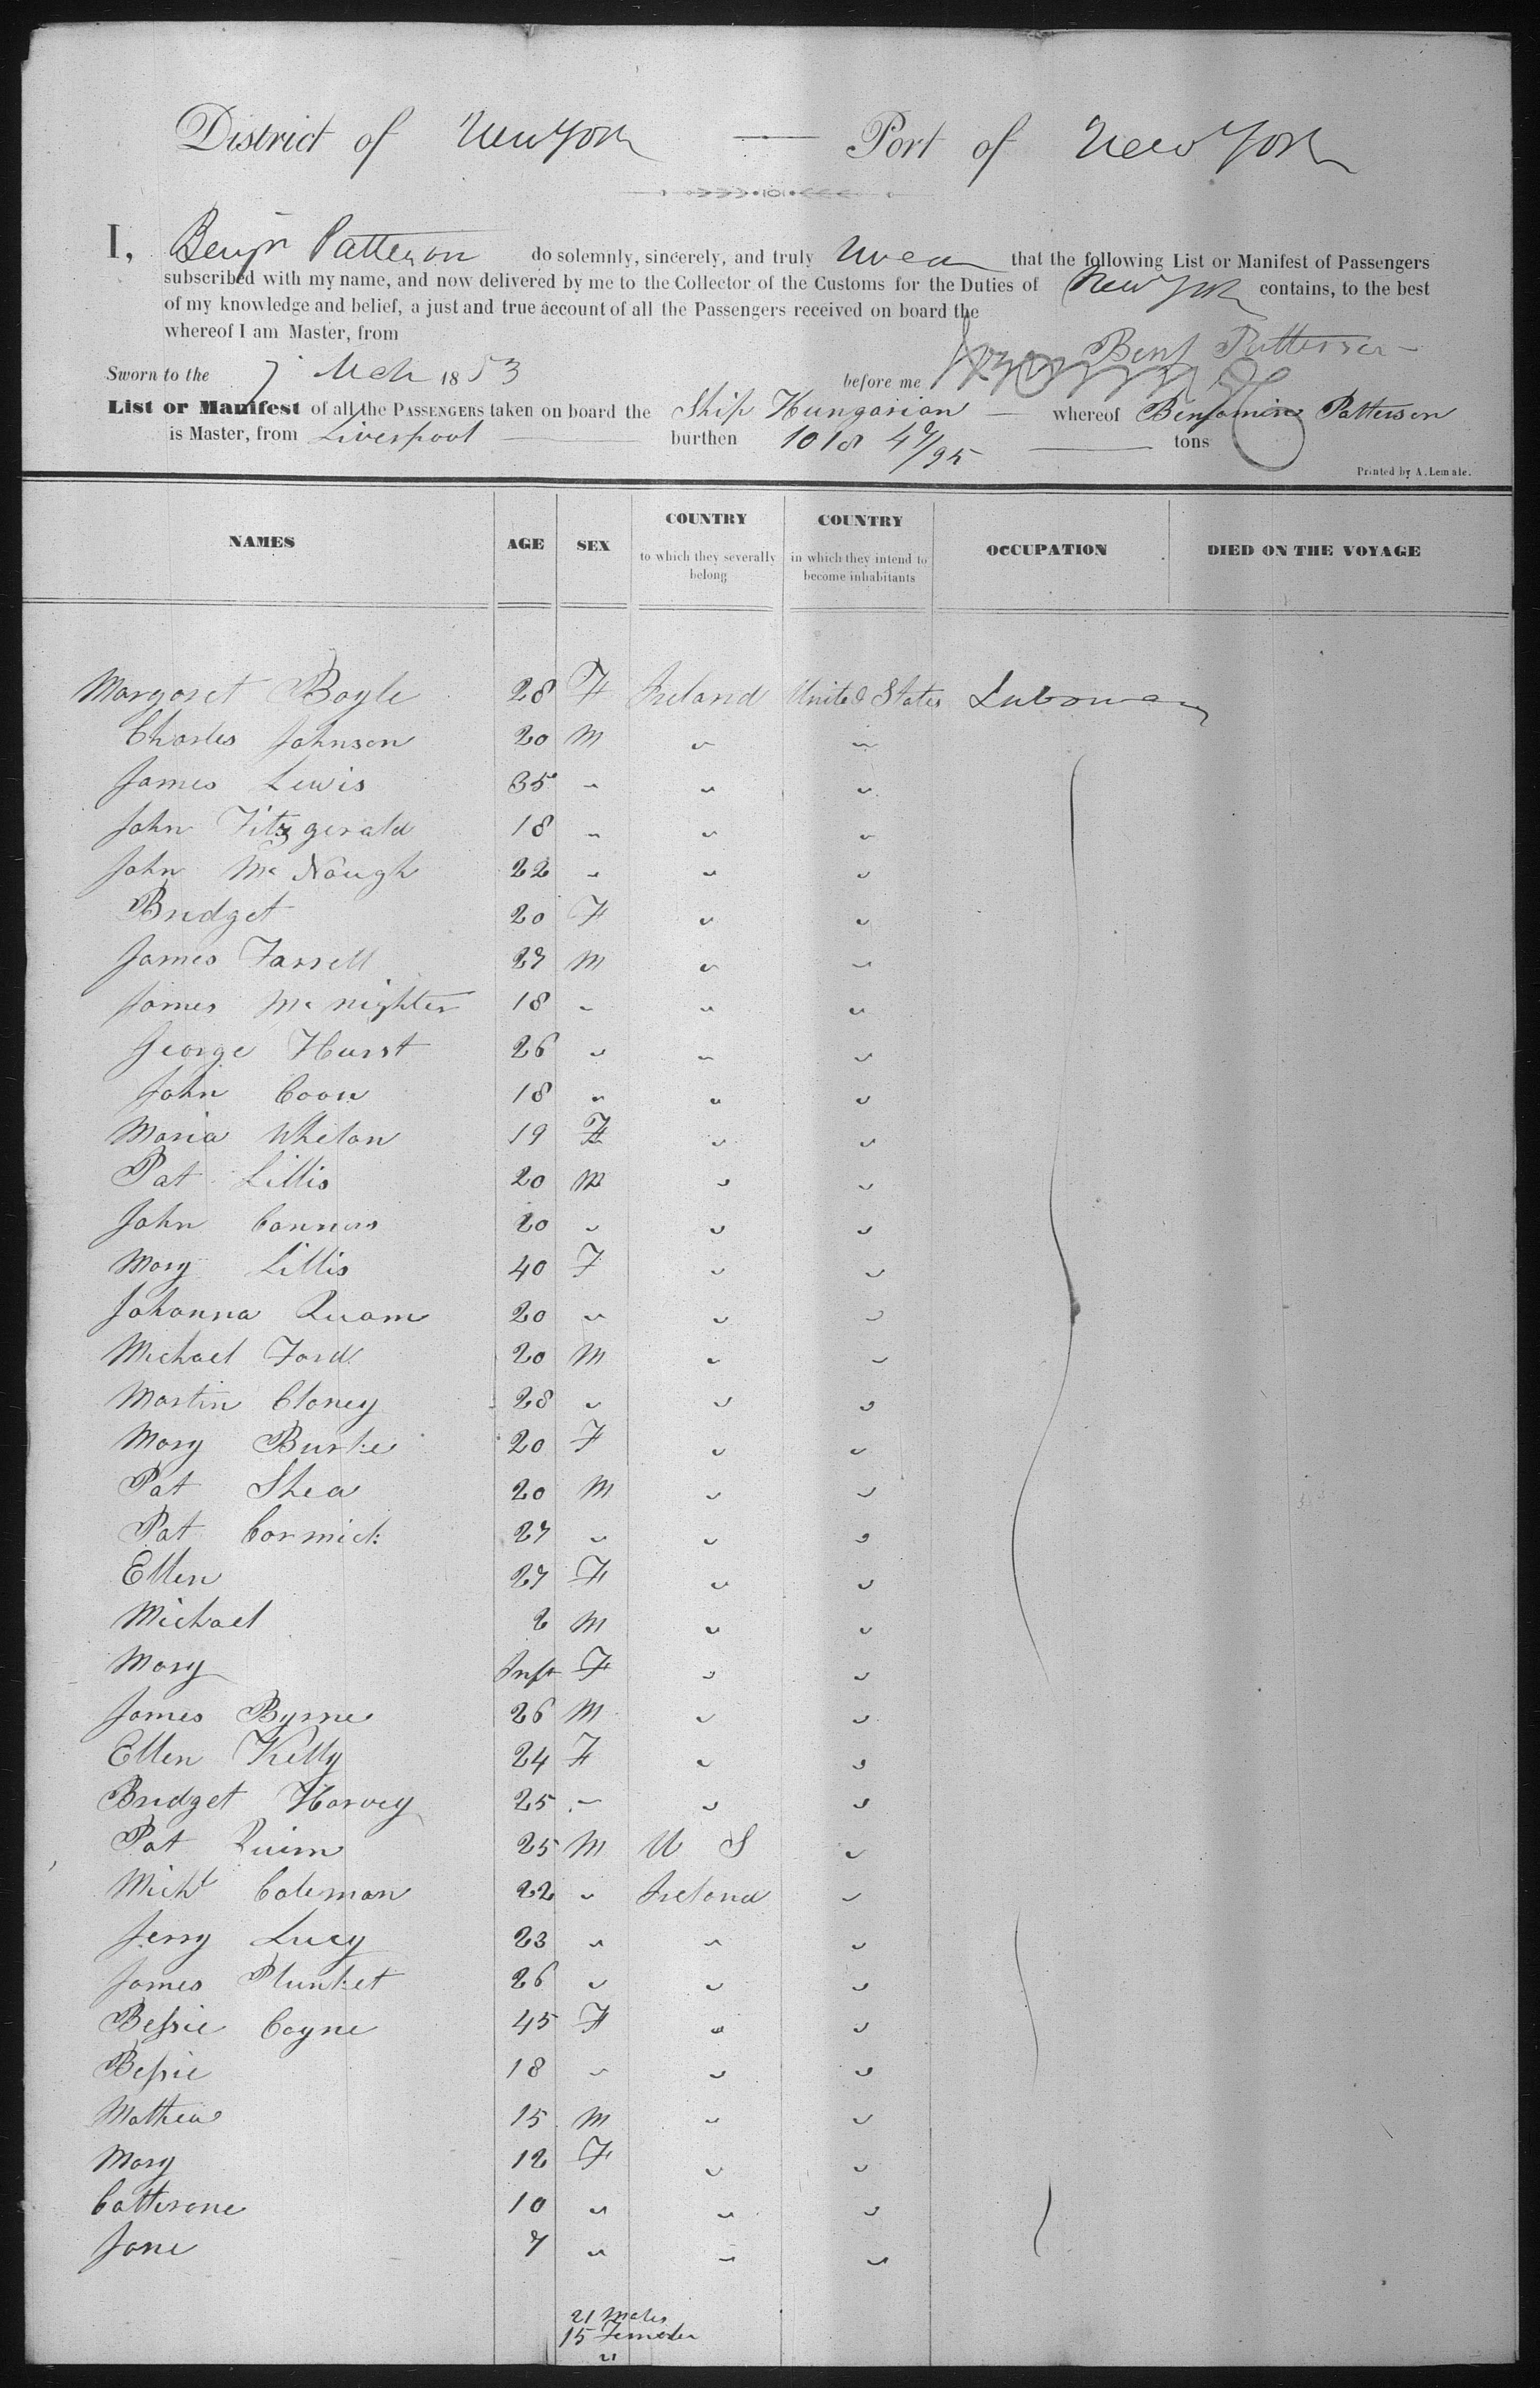 District of New York — Port of New York
I, Benjn Patterson do solemnly, sincerely, and truly swear that the following List or Manifest of Passengers
subscribed with my name, and now delivered by me to the Collector of the Customs for the Duties of New York contains, to the best
of my knowledge and belief, a just and true account of all the Passengers received on board the
whereof I am Master, from
Benj Patterson
Sworn to the 7 Mch 1853 before me
List or Manifest of all the PASSENGERS taken on board the Ship Hungarian — whereof Benjamin Patterson
is Master, from Liverpool — burthen 1018 47/95 — tons
Printed by A. Lemale.
NAMES AGE SEX COUNTRY to which they severally belong COUNTRY in which they intend to become inhabitants OCCUPATION DIED ON THE VOYAGE
Margaret Boyle 28 F Ireland United States
Charles Johnson 20 M " "
James Lewis 35 " " "
John Fitzgerald 18 " " "
John Mc Nough 22 " " "
Bridget 20 F " "
James Farrell 27 M " "
James Mc nighter 18 " " "
George Hurst 26 " " "
John Coon 18 " " "
Maria Whelan 19 F " "
Pat Lillis 20 M " "
John Connors 20 " " "
Mary Lillis 40 F " "
Johanna Ruam 20 " " "
Michael Ford 20 M " "
Martin Cloney 28 " " "
Mary Burke 20 F " "
Pat Shea 20 M " "
Pat Cormick 27 " " "
Ellen 27 F " "
Michael 2 M " "
Mary Inft F " "
James Byrne 26 M " "
Ellen Kelly 24 F " "
Bridget Harvey 25 " " "
Pat 25 M U S "
Michl Coleman 22 " Ireland "
Jerry Lucy 23 " " "
James Plunket 26 " " "
Bessie Coyne 45 F " "
Bessie 18 " " "
Mathew 15 M " "
Mary 12 F " "
Catterane 10 " " "
Jane 7 " " "
21 Males
15 Females
"